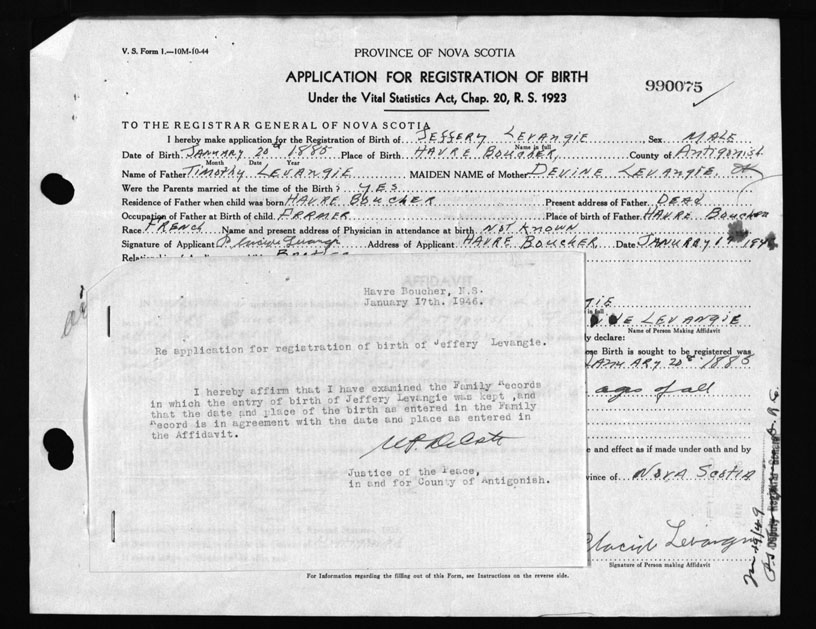 V. S. Form 1.—10M-10-44
PROVINCE OF NOVA SCOTIA
APPLICATION FOR REGISTRATION OF BIRTH
990075
Under the Vital Statistics Act, Chap. 20, R. S. 1923
TO THE REGISTRAR GENERAL OF NOVA SCOTIA
I hereby make application for the Registration of Birth of JEFFERY LEVANGIE Sex MALE
Name in full
Date of Birth JANUARY 20th 1885 Place of Birth HAVRE BOUCHER, County of ANTIGONISH
Month Date Year
Name of Father TIMOTHY LEVANGIE MAIDEN NAME of Mother DEVINE LEVANGIE
Were the Parents married at the time of the Birth? YES
Residence of Father when child was born HAVRE BOUCHER Present address of Father DEAD
Occupation of Father at Birth of child FRAMER Place of birth of Father HAVRE BOUCHER
Race FRENCH Name and present address of Physician in attendance at birth NOT KNOWN
Signature of Applicant Address of Applicant HAVRE BOUCHER Date JANUARY 17
Brother
Havre Boucher, N.S.
January 17th. 1946.
Re application for registration of birth of Jeffery Levangie.
I hereby affirm that I have examined the Family Records
in which the entry of birth of Jeffery Levangie was kept ,and
that the date and place of the birth as entered in the Family
Record is in agreement with the date and place as entered in
the Affidavit.
Justice of the Peace,
in and for County of Antigonish.
in full
LEVANGIE
Name of Person Making Affidavit
declare:
Birth is sought to be registered was
JANUARY 20th 1885
ago of all
and effect as if made under oath and by
vince of NOVA SCOTIA
Placid Levangie
Signature of Person making Affidavit
For Information regarding the filling out of this Form, see Instructions on the reverse side.